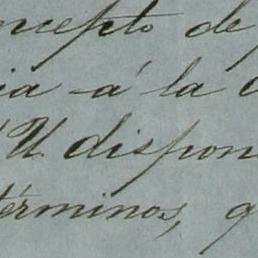 ncepto de
ia á la
U. dispon
términos, q